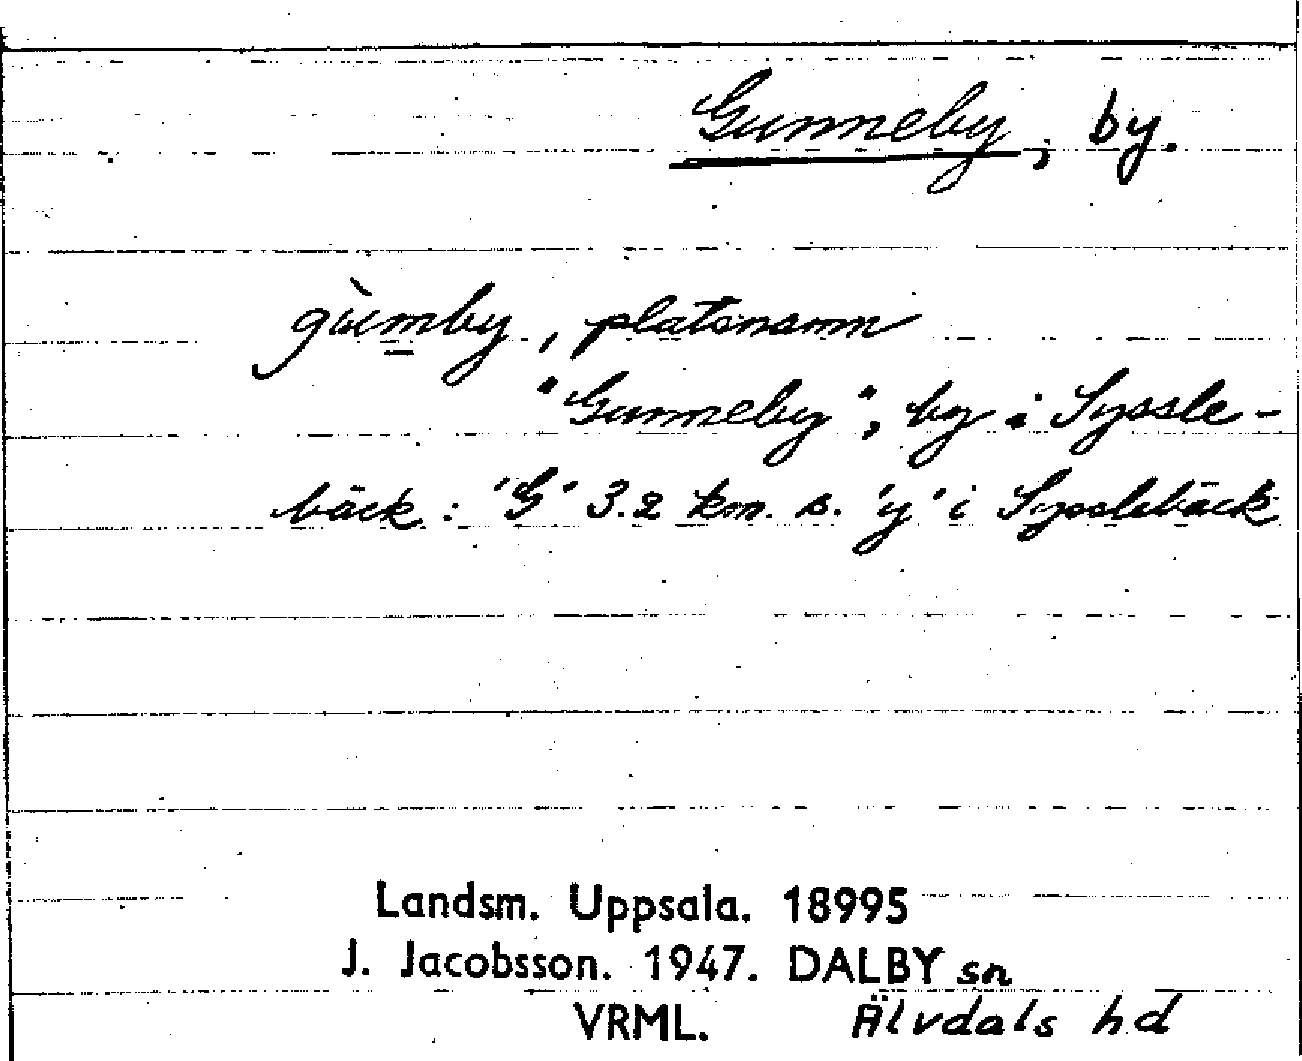 Gunneby, by.
gùmby, platsnamn
"Gunneby", by i Syssle-
bäck: 'G' 3.2 km. s. 'y' i Sysslebäck
Landsm. Uppsala. 18995
J. Jacobsson. 1947. DALBY sn
VRML. Älvdals hd